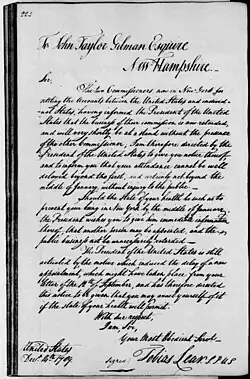 222
To John Taylor Gilman Esquire
New Hampshire
Sir,
The two Commissioners, now in New York for
settling the Accounts between the United States and individ-
-ual States, having informed the President of the United
States that the business of their commission is now retarded,
and will very shortly be at a stand without the presence
of the other Commissioner, I am therefore directed by the
President of the United States to give you notice thereof,
and to inform you that your attendance cannot be well
delayed beyond the first, and certainly not beyond the
middle of January, without injury to the public.
Should the state of your health be such as to
prevent your being in New York by the middle of January,
the President wishes you to give him immediate information
thereof, that another person may be appointed, and the
public business not be unnecessarily retarded
The President of the United States is still
actuated by the motives which induced the delay of a new
appointment, which might have taken place from your
letter of the of September, and has therefore directed
this notice to be given that you may avail yourself of it
if the state of your health will permit.
With due respect,
I am, Sir,
Your Most Obedient Servt.
signed, Tobias Lear S.P.U.S
United States
Decr.